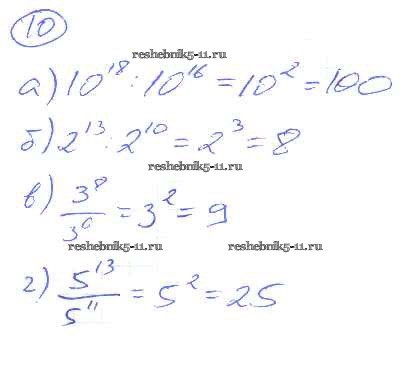 10
reshebnik5-11.ru
а) 10^18 : 10^16 = 10^2 = 100
б) 2^13 : 2^10 = 2^3 = 8
reshebnik5-11.ru
в) 3^8/3^6 = 3^2 = 9
reshebnik5-11.ru reshebnik5-11.ru
г) 5^13/5^11 = 5^2 = 25